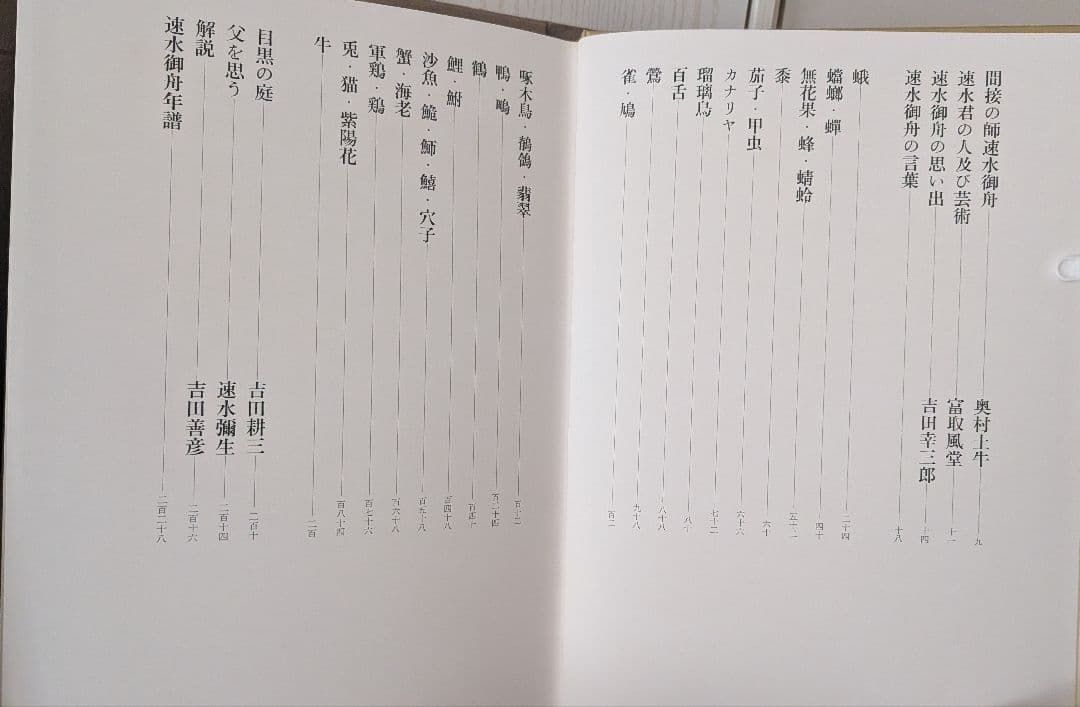 間接の師速水御舟 奥村土牛 九
速水君の人及び芸術 富取風堂 十一
速水御舟の思い出 吉田幸三郎 十四
速水御舟の言葉 十八
蛾 二十四
蟷螂・蟬 四十
無花果・蜂・蜻蛉
黍
茄子・甲虫 六十
カナリヤ 六十六
瑠璃鳥 七十二
百舌 八十
鶯 八十八
雀・鳩 九十八
啄木鳥・鶺鴒・翡翠
鴨・鴫
鶴
鯉・鮒 百四十八
沙魚・鮠・鰤・鱚・穴子 百五十八
蟹・海老 百六十八
軍鶏・鶏 百七十六
兎・猫・紫陽花 百八十四
牛 二百
目黒の庭 吉田耕三 二百十
父を思う 速水彌生 二百十四
解説 吉田善彦 二百十六
速水御舟年譜 二百二十八